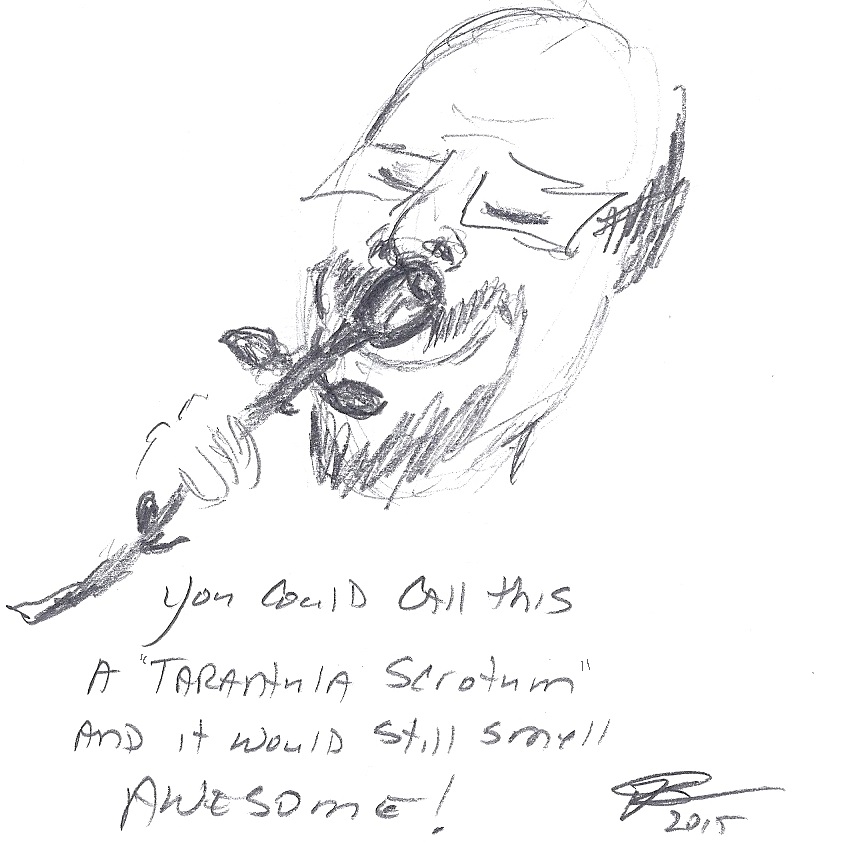 You Could Call this
A "TARANtulA Scrotum"
AND it would still smell
AWESOME!
2015